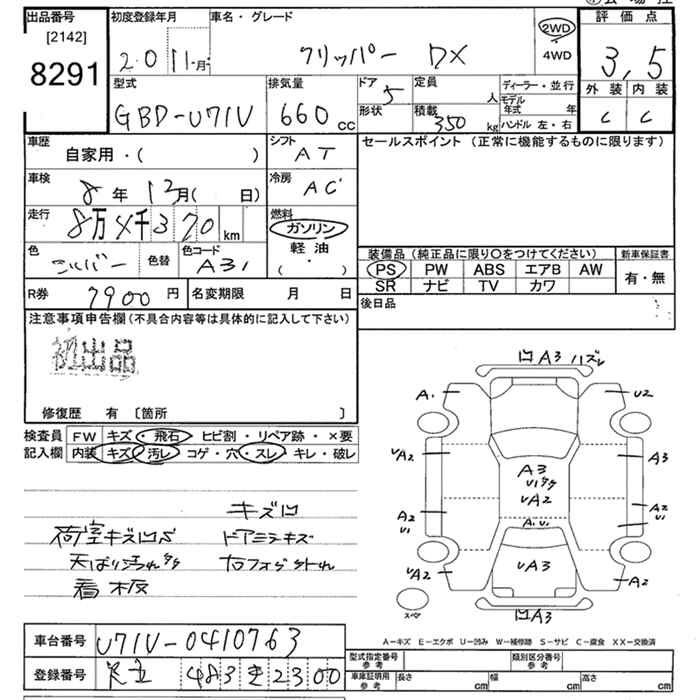 出品番号
[2142]
8291
初度登録年月
20 11月
車名・グレード
クリッパー DX
2WD
4WD
評価点
3,5
外装 内装
C C
型式
GBD-U71V
排気量
660 CC
ドア
5
形状
定員
人
積載
350 kg
ディーラー・並行
モデル年式 年
ハンドル 左・右
車歴
自家用・( )
シフト
AT
車検
8年 12月( 日)
冷房
AC
走行
8万4千370 km
燃料
ガソリン
軽油
( ・ )
色
シルバー
色替
色コード
A31
R券
7900 円
名変期限 月 日
セールスポイント (正常に機能するものに限ります)
装備品 (純正品に限り〇をつけてください)
PS PW ABS エアB AW
SR ナビ TV カワ
新車保証書
有・無
後日品
注意事項申告欄(不具合内容等は具体的に記入して下さい)
初出品
修復歴 有 〔箇所 〕
検査員記入欄
FW キズ・飛石 ヒビ割・リペア跡・×要
内装 キズ・汚レ コゲ・穴・スレ・キレ・破レ
キズ凹
荷室キズ凹
天ばり汚れ
看板
凹 A3 ハズレ
A1 U2
UA2 A3
A3
UA2
A2 U1
A2 U1
A.U1
UA2 UA3 A2
スペア
凹A3
A-キズ E-エクボ U-凹み W-補修跡 S-サビ C-腐食 XX-交換済
車台番号
U71V-0410763
登録番号
足立 483 き 2300
型式指定番号 参考
類別区分番号 参考
車庫証明用 参考
長さ cm 幅 cm 高さ cm